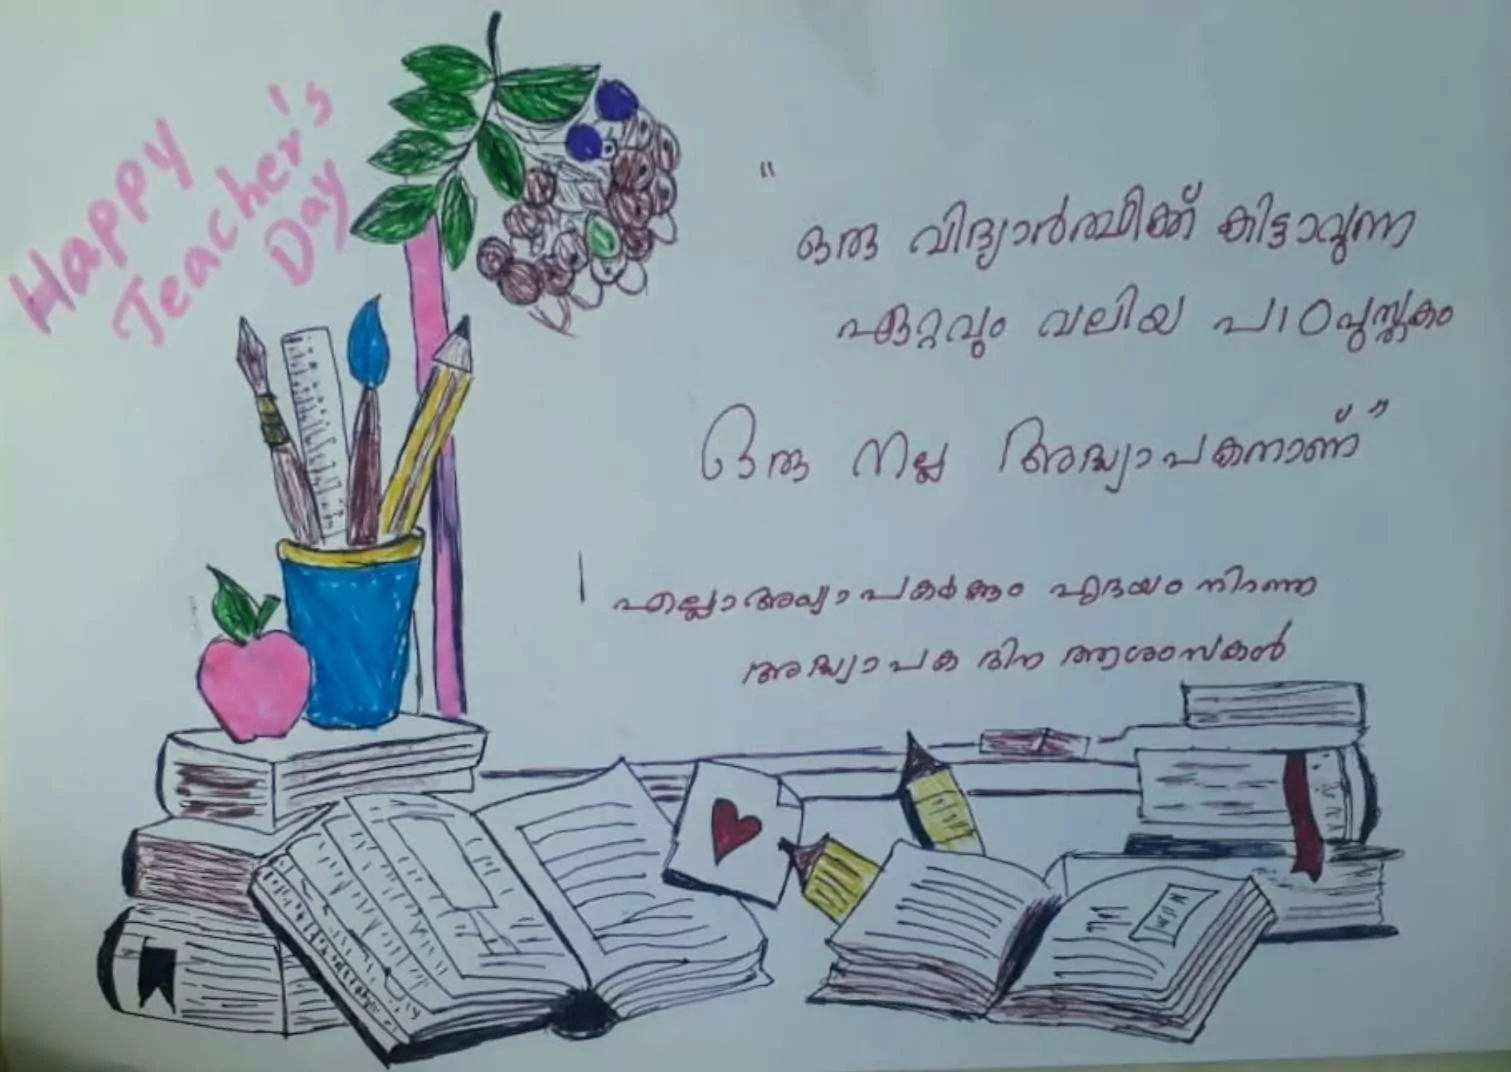 Happy
Teacher's
Day
"
ഒരു വിദ്യാർത്ഥിക്ക് കിട്ടാവുന്ന
ഏറ്റവും വലിയ പാഠപുസ്തകം
ഒരു നല്ല അദ്ധ്യാപകനാണ്"
എല്ലാ അധ്യാപകർക്കും ഹൃദയം നിറഞ്ഞ
അദ്ധ്യാപക ദിന ആശംസകൾ